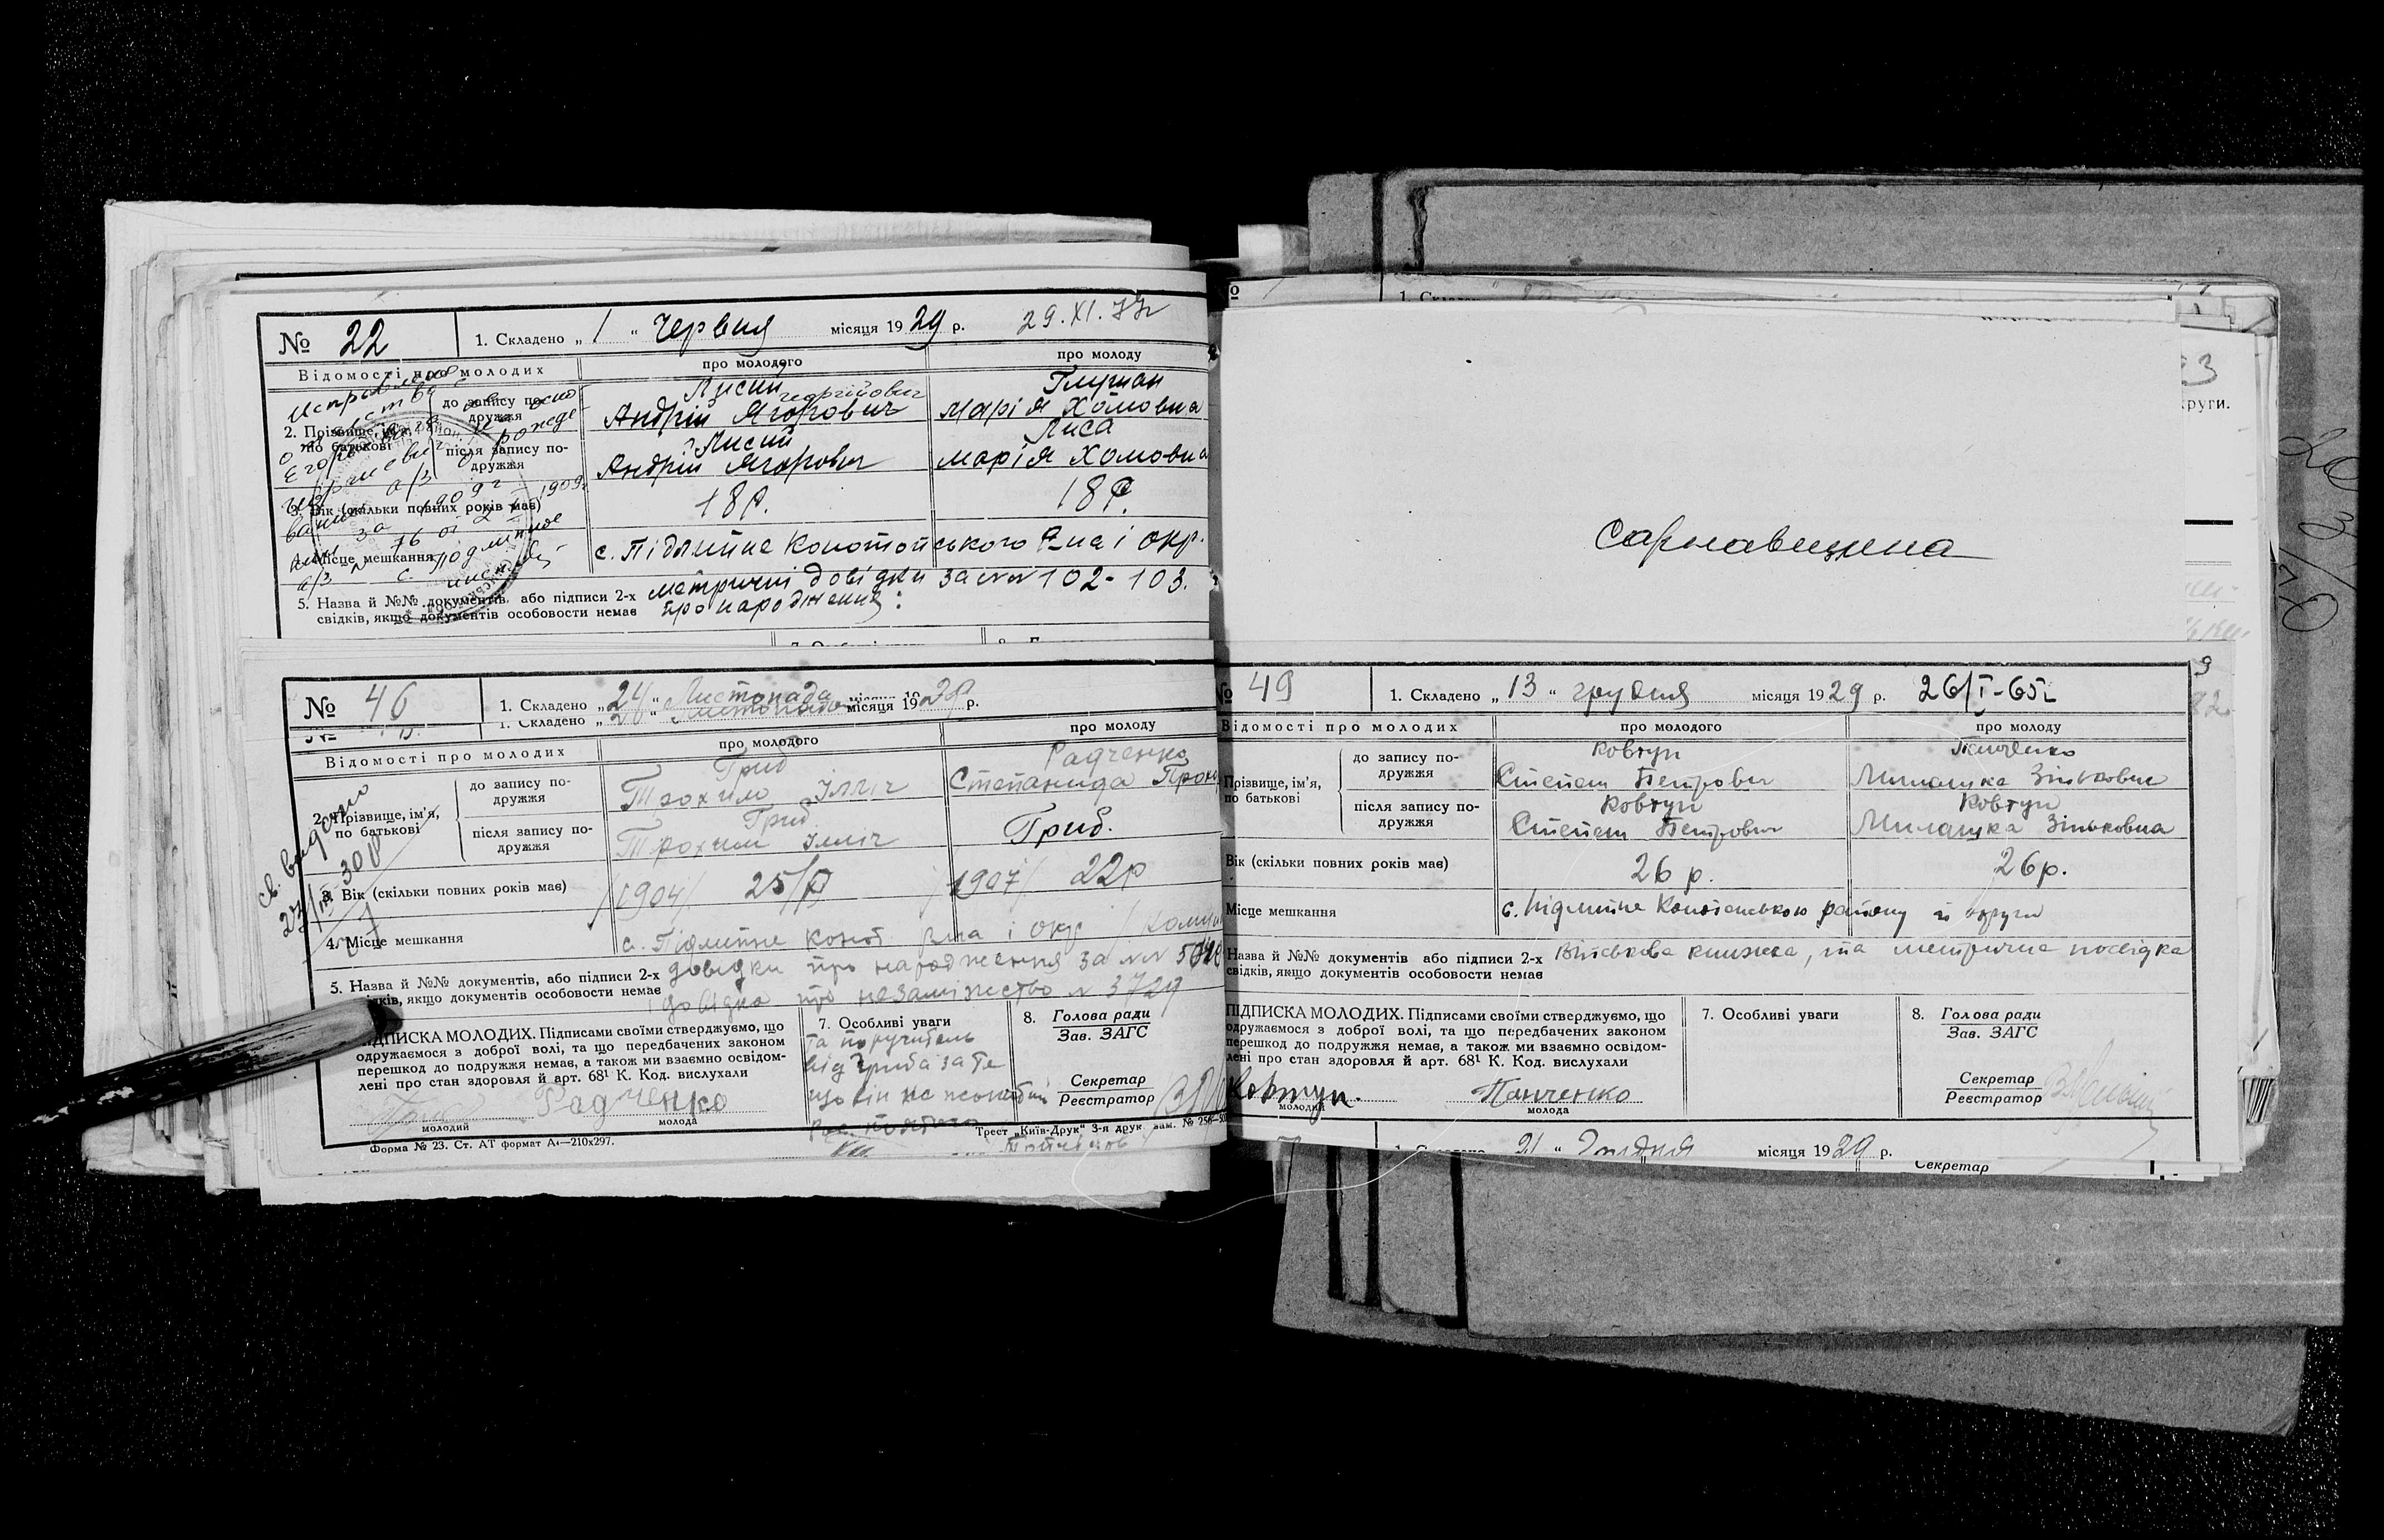 № 22
1. Складено „ 1 “ Червня місяця 1929 р. 29.XI.77г
Відомості про молодих
про молодого
про молоду
2. Прізвище, ім'я, по батькові
до запису по-
дружжя
Лисий
Георгійович
Андрій Ягорович
Глушан
Марія Хомовна
після запису по-
дружжя
Лисий
Андрій Ягорович
Лиса
Марія Хомовна
3. Вік (скільки повних років має)
18 р.
18 р.
Місце мешкання
с. Підлипне Конотопського Р-на і окр.
5. Назва й №№ документів, або підписи 2-х
свідків, якщо документів особовости немає
метричні довідки за №№ 102-103.
про народження
№ 46
1. Складено „ 24 “ Листопада
1. Складено „ “ місяця 1929 р.
Відомості про молодих
про молодого
про молоду
св. видано
2. Прізвище, ім'я,
по батькові
до запису по-
дружжя
Гриб
Трохим Ілліч
Радченко
Степанида
після запису по-
дружжя
Гриб
Трохим Ілліч
Гриб.
3. Вік (скільки повних років має)
/1904/ 25/р
/1907/ 22р
4. Місце мешкання
с. Підлипне Конот р-на і окр
5. Назва й №№ документів, або підписи 2-х
свідків, якщо документів особовости немає
довідки про народження за №№
довідка про незаміжество № 3729
ПІДПИСКА МОЛОДИХ. Підписами своїми стверджуємо, що
одружаємося з доброї волі, та що передбачених законом
перешкод до подружжя немає, а також ми взаємно освідом-
лені про стан здоровля й арт. 68¹ К. Код. вислухали
Радченко
молодий
молода
7. Особливі уваги
та поручитель
від Гриба за те
що він не жонатий
8. Голова ради
Зав. ЗАГС
Секретар
Реєстратор
Форма № 23. Ст. АТ формат А₄—210x297.
Трест „Київ-Друк“ 3-я друк. зам. №
Сарнавщина
№ 49
1. Складено „ 13 “ грудня місяця 1929 р. 26/I-65г
Відомості про молодих
про молодого
про молоду
Прізвище, ім'я,
по батькові
до запису по-
дружжя
Ковтун
Степан Петрович
Панченко
Милашка Зіньковна
після запису по-
дружжя
Ковтун
Степан Петрович
Ковтун
Милашка Зіньковна
Вік (скільки повних років має)
26 р.
26 р.
Місце мешкання
с. Підлипне Конотопського району й округи
Назва й №№ документів або підписи 2-х
свідків, якщо документів особовости немає
Військова книжка, та метрична посвідка
ПІДПИСКА МОЛОДИХ. Підписами своїми стверджуємо, що
одружаємося з доброї волі, та що передбачених законом
перешкод до подружжя немає, а також ми взаємно освідом-
лені про стан здоровля й арт. 68¹ К. Код. вислухали
Ковтун.
Панченко
молодий
молода
7. Особливі уваги
8. Голова ради
Зав. ЗАГС
Секретар
Реєстратор
21 “ Грудня місяця 1929 р.
Секретар